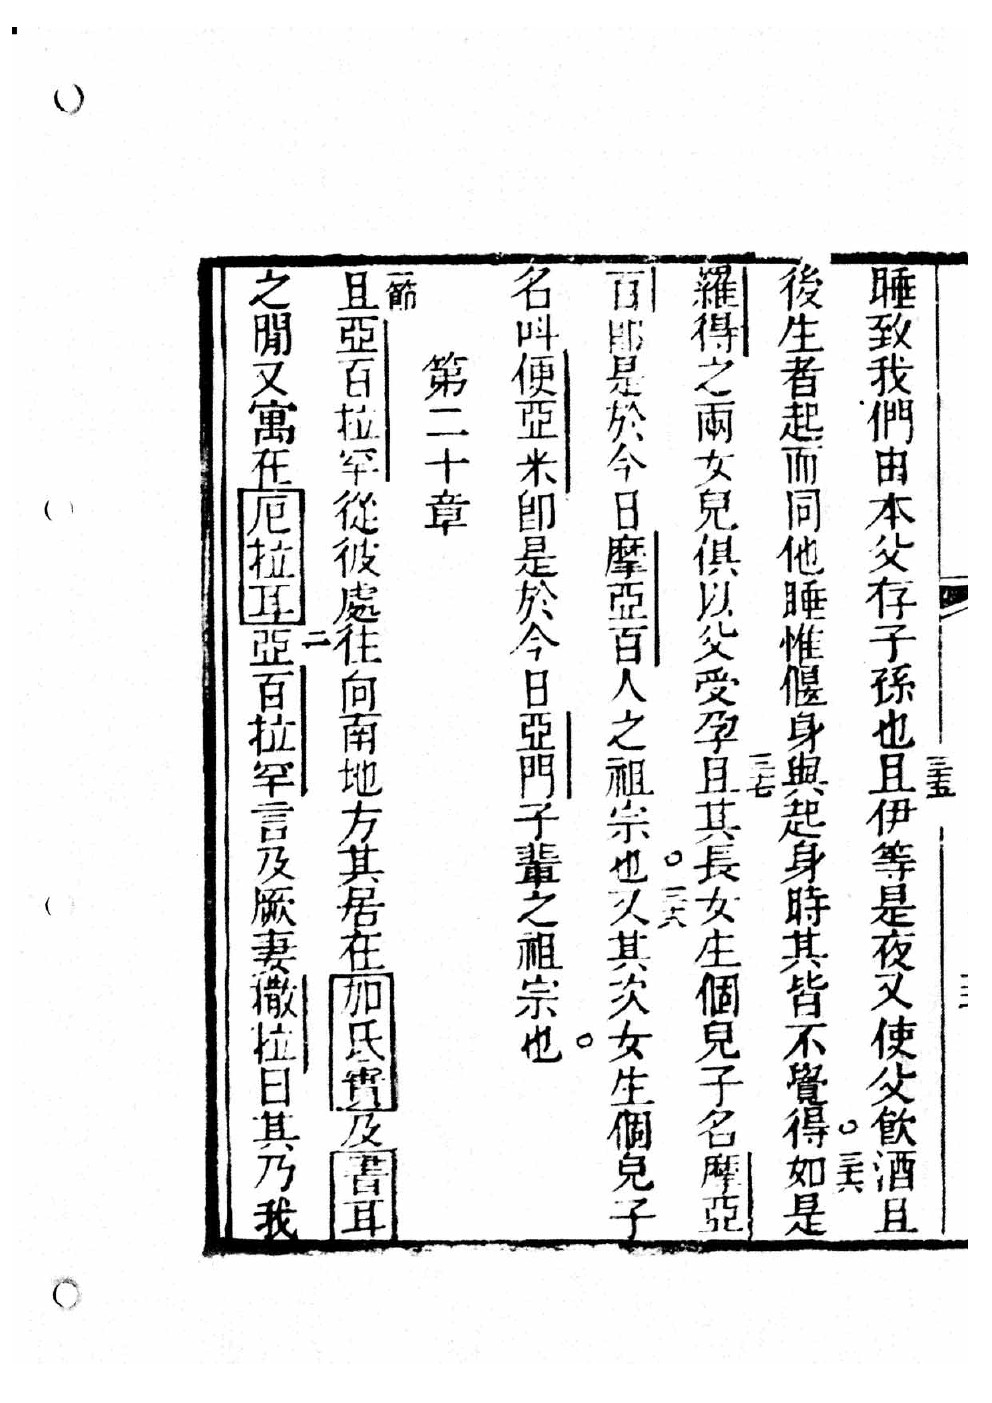 睡致我們由本父存子孫也且伊等是夜又使父飲酒且
三五
後生者起而同他睡惟偃身與起身時其皆不覺得如是
三六
羅得之兩女兒俱以父受孕且其長女生個兒子名摩亞
三七
百卽是於今日摩亞百人之祖宗也又其次女生個兒子
三八
名呌便亞米卽是於今日亞門子輩之祖宗也
第二十章
一節
且亞百拉罕從彼處往向南地方其居在加氏實及書耳
之間又寓在厄拉耳亞百拉罕言及厥妻撒拉曰其乃我
二